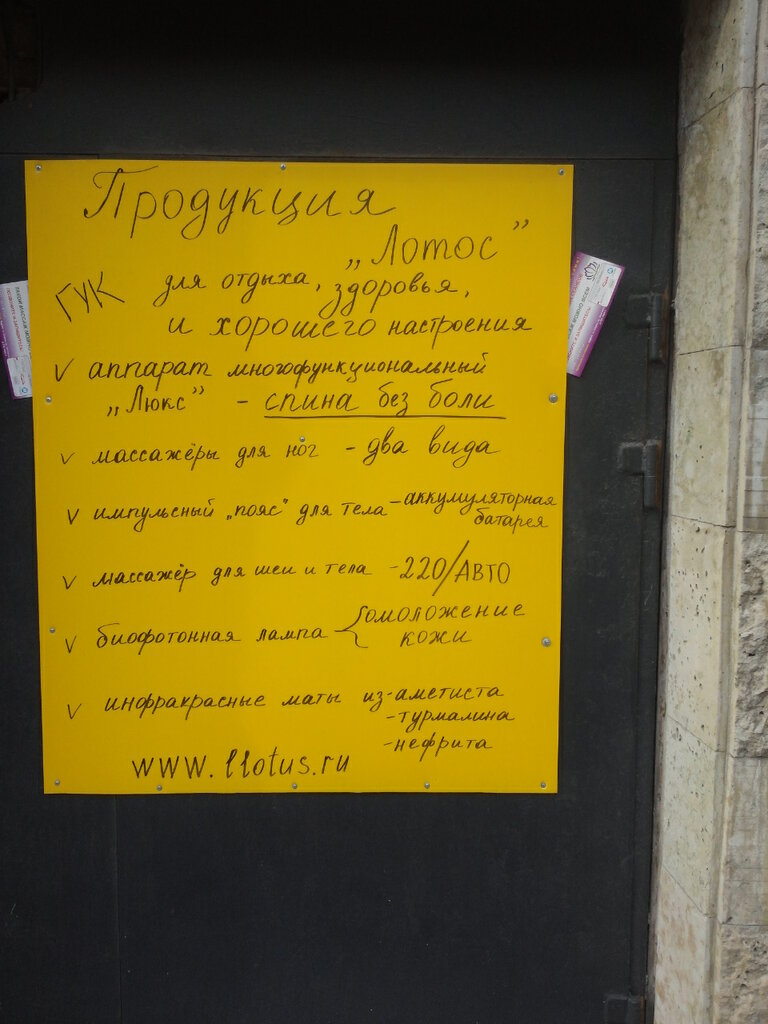 Продукция
„Лотос”
ГУК для отдыха, здоровья,
и хорошего настроения
v аппарат многофункциональный
„Люкс” - спина без боли
v массажёры для ног - два вида
v импульсный „пояс” для тела - аккумуляторная
батарея
v массажёр для шеи и тела - 220/АВТО
v биофотонная лампа { омоложение
кожи
v инфракрасные маты из - аметиста
- турмалина
- нефрита
www.llotus.ru